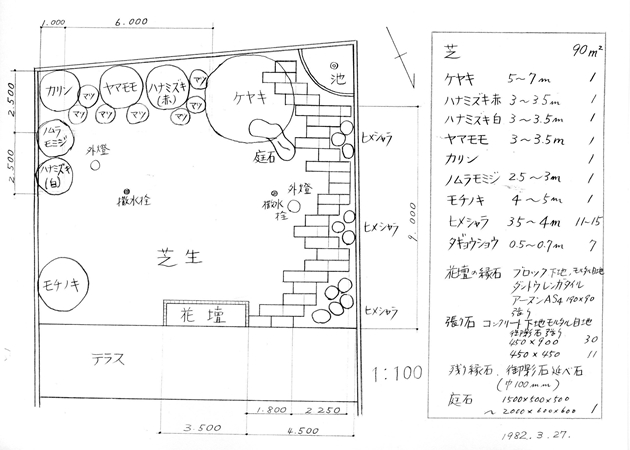 1.000 6.000
2.500
2.500
カリン
マツ
ヤマモモ
ハナミズキ
(赤)
マツ
マツ
マツ
マツ
ケヤキ
池
ノムラ
モミジ
ハナミズキ
(白)
外燈
庭石
ヒメシャラ
撒水栓
撒水
栓
外燈
ヒメシャラ
9.000
芝生
モチノキ
花壇
ヒメシャラ
テラス
1:100
1.800 2 250
3.500 4.500
芝 90m²
ケヤキ 5~7m 1
ハナミズキ赤 3~3.5m 1
ハナミズキ白 3~3.5m 1
ヤマモモ 3~3.5m 1
カリン 1
ノムラモミジ 2.5~3m 1
モチノキ 4~5m 1
ヒメシャラ 3.5~4m 11-15
タギョウショウ 0.5~0.7m 7
花壇の縁石 ブロック下地、モルタル目地
レンガタイル
190×90
張り
張り石 コンクリート下地モルタル目地
御影石張り
450×900 30
450×450 11
残り縁石、御影石延べ石
(巾100mm)
庭石 1500×500×500
~2000×600×600 1
1982.3.27.